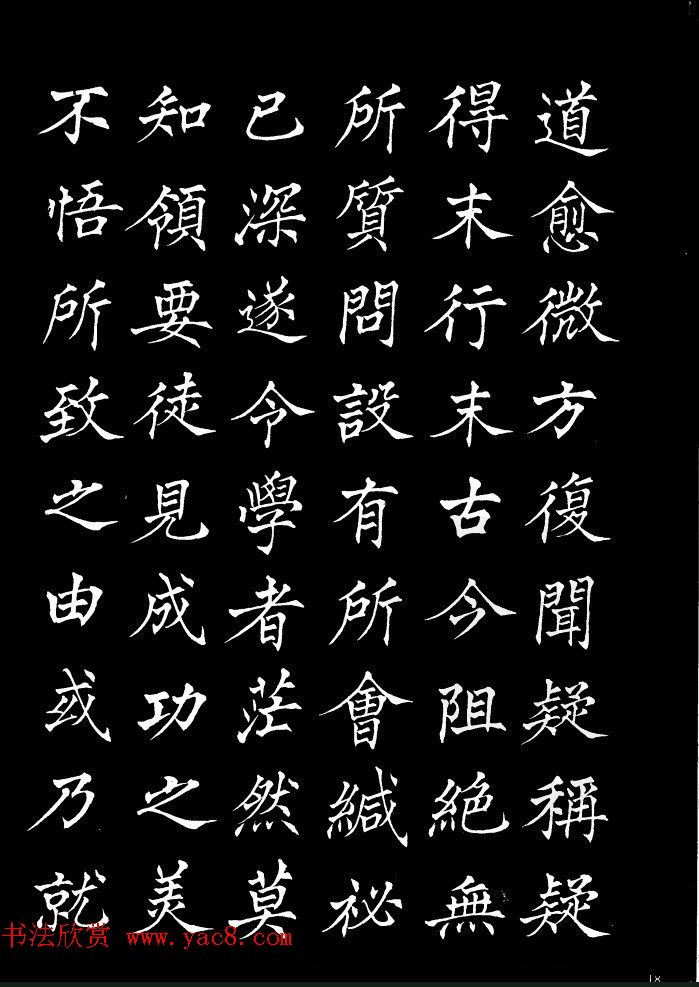 道愈微方復聞疑稱疑
得末行末古今阻絶無
所質問設有所會緘祕
已深遂令學者茫然莫
知領要徒見成功之美
不悟所致之由或乃就
书法欣赏 www.yac8.com
18